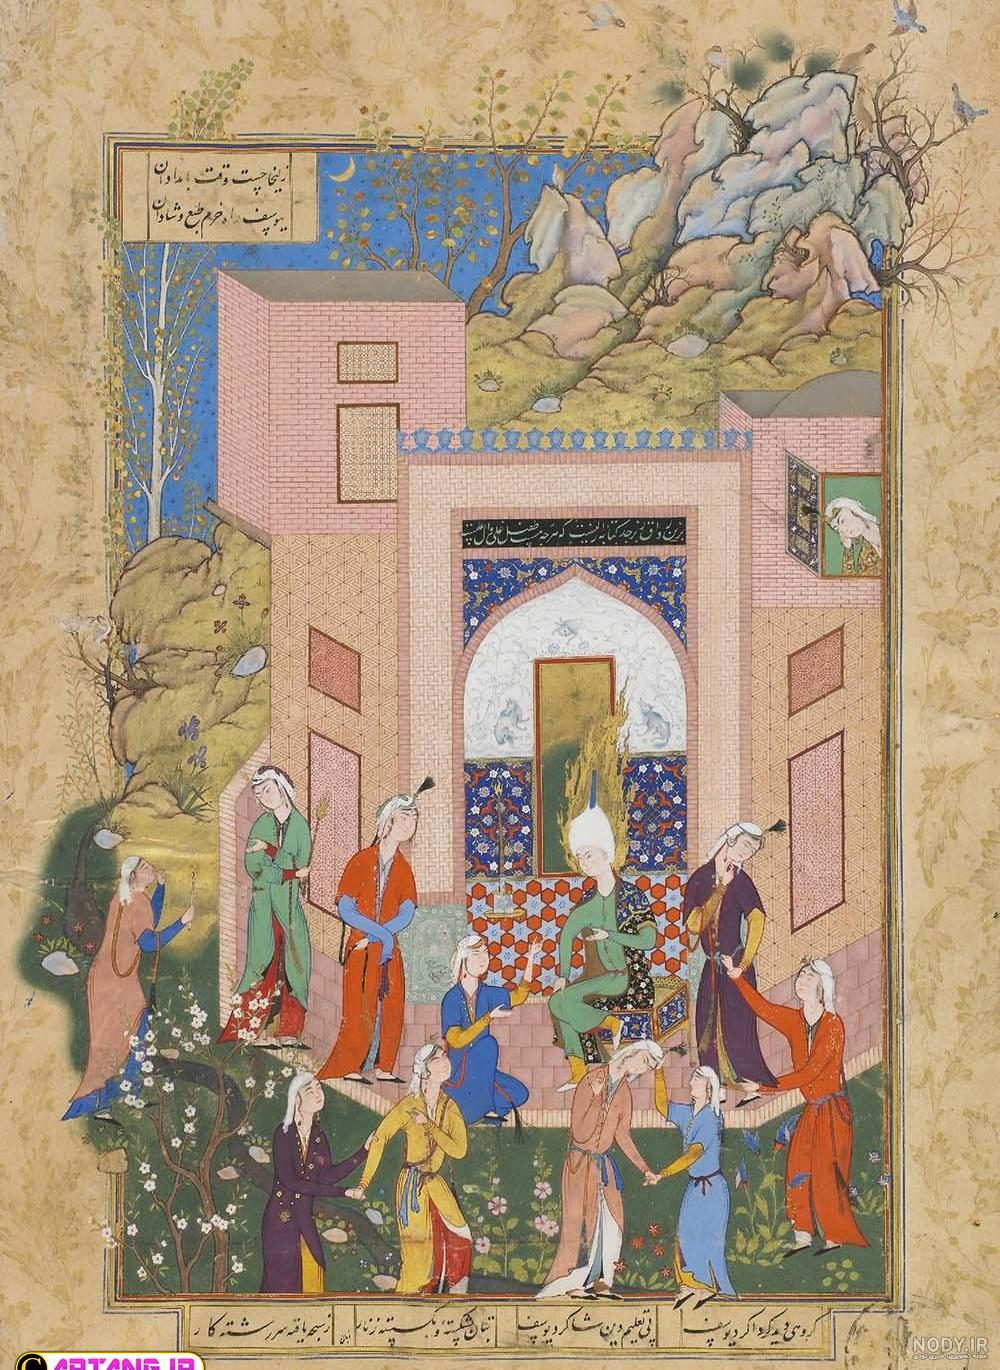 زلیخا جست وقت بامدادان
بیوسف راه خرم طبع و شادان
گروهی دید گرداگرد یوسف
پی تعلیم دین شاگرد یوسف
بتان بشکسته و بگسسته زنار
ز سبحه یافته سررشته کار
NODY.IR
ARTANG.IR